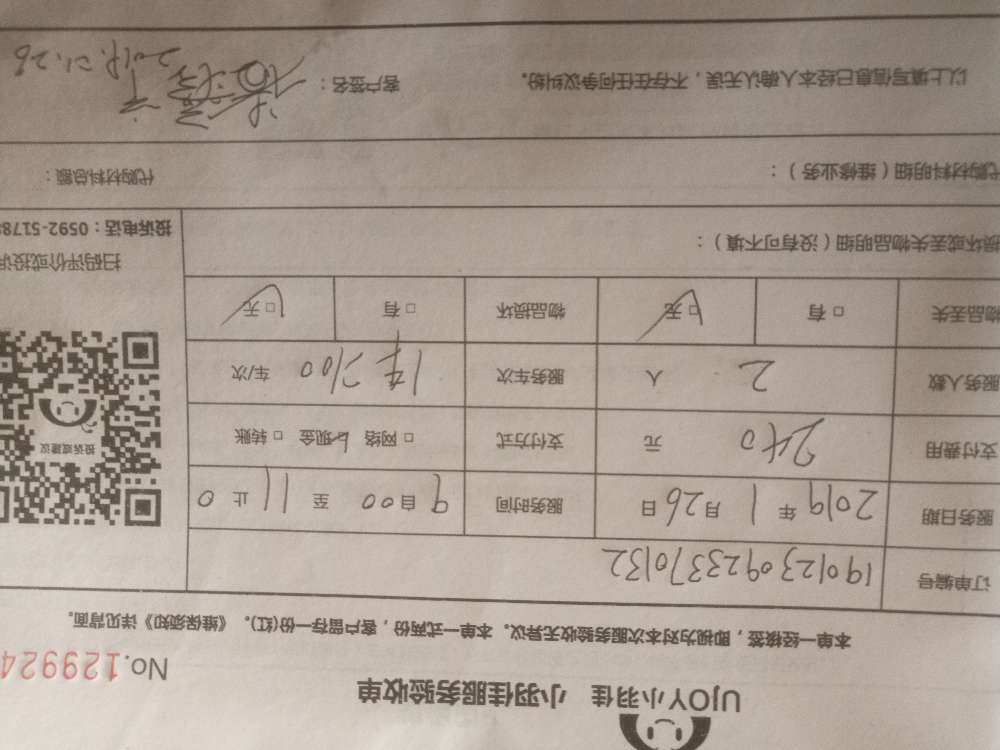 UJOY小羽佳 小羽佳服务验收单
No.129924
本单一经核签，即视为对本次服务验收无异议。本单一式两份，客户留存一份(红)。《维保须知》详见背面。
订单编号 1901230923370132
服务日期 2019年1月26日 服务时间 9自00至11止0
支付费用 240元 支付方式 □网络 现金 □转账
服务人数 2人 服务车次 车/次
物品丢失 □有 □无 物品损坏 □有 □无
损坏或丢失物品明细（没有可不填）：
投诉或建议
扫码评价或投诉
投诉电话：0592-5178
代购材料明细（维修业务）： 代购材料总额：
以上填写信息已经本人确认无误，不存在任何争议纠纷。 客户签名：